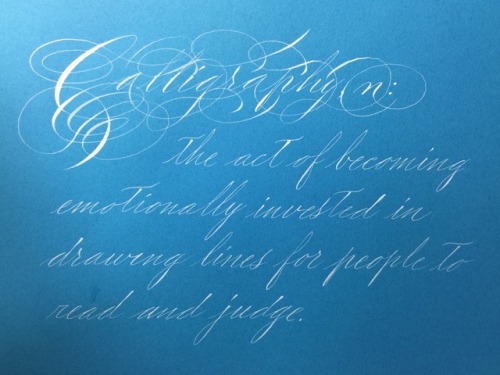 Calligraphy, n:
the act of becoming
emotionally invested in
drawing lines for people to
read and judge.